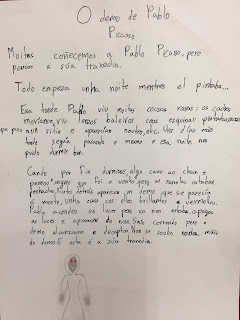 O demo de Pablo
Picaso
Moitos coñecemos a Pablo Picaso, pero
poucos a súa traxedia.
Todo empeza unha noite mentres el pintaba...
Esa tarde Pablo viu moitas cousas raras: os cadros
movíanse, viu unhas baleiros esas esquinas pintaba unha cousa
que puso nun sitio e aparecían noutro, etc. Uns días máis
tarde seguía pasando o mesmo e esa noite non
pudo durmir ben.
Cando por fin durmiuse, algo caeu ao chan e
pensou "seguro que foi o vento" pero as ventás estaban
pechadas. Xusto detrás apareceu un demo que se parecía
á morte, unha cara cos ollos brillantes e vermellos.
Pablo acendeu as luces pero xa non estaba, apagou
as luces e apareceu de novo. Saíu correndo pero o
demo alcanzouno e decapitouno. Non se soubo nunca máis
do demo. E esta é a súa traxedia.